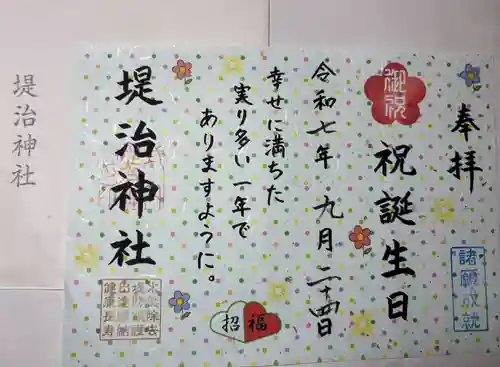 奉拝
諸願成就
御祝
祝誕生日
令和七年 九月 二十四日
幸せに満ちた
実り多い一年で
ありますように。
招福
堤治神社
堤治神社